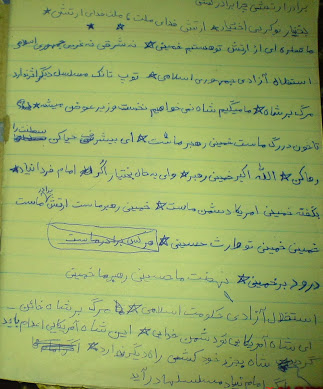 برادر ارتشی چرا برادر کشی
بختیار نوکر بی اختیار * ارتش فدای ملت، ملت فدای ارتش *
ما همه از ارتش تو هستیم خمینی * نه شرقی نه غربی جمهوری اسلامی
استقلال آزادی جمهوری اسلامی * توپ تانک مسلسل دیگر اثر ندارد
مرگ بر شاه * ما میگیم شاه نمی خواهیم نخست وزیر عوض میشه
تا خون در رگ ماست خمینی رهبر ماست * ای بیشرف حیا کن سلطنت را
رها کن * الله اکبر خمینی رهبر * وای به حال بختیار اگر امام فردا نیاد *
بگفته خمینی امریکا دشمن ماست * خمینی رهبر ماست ارتش برادر ماست
خمینی خمینی تو وارث حسینی *
درود بر خمینی * نهضت ما حسینی رهبر ما خمینی
استقلال آزادی حکومت اسلامی * مرگ بر شاه خائن
ای شاه آمریکایی تو دشمن خدایی * این شاه آمریکایی اعدام باید
گردد